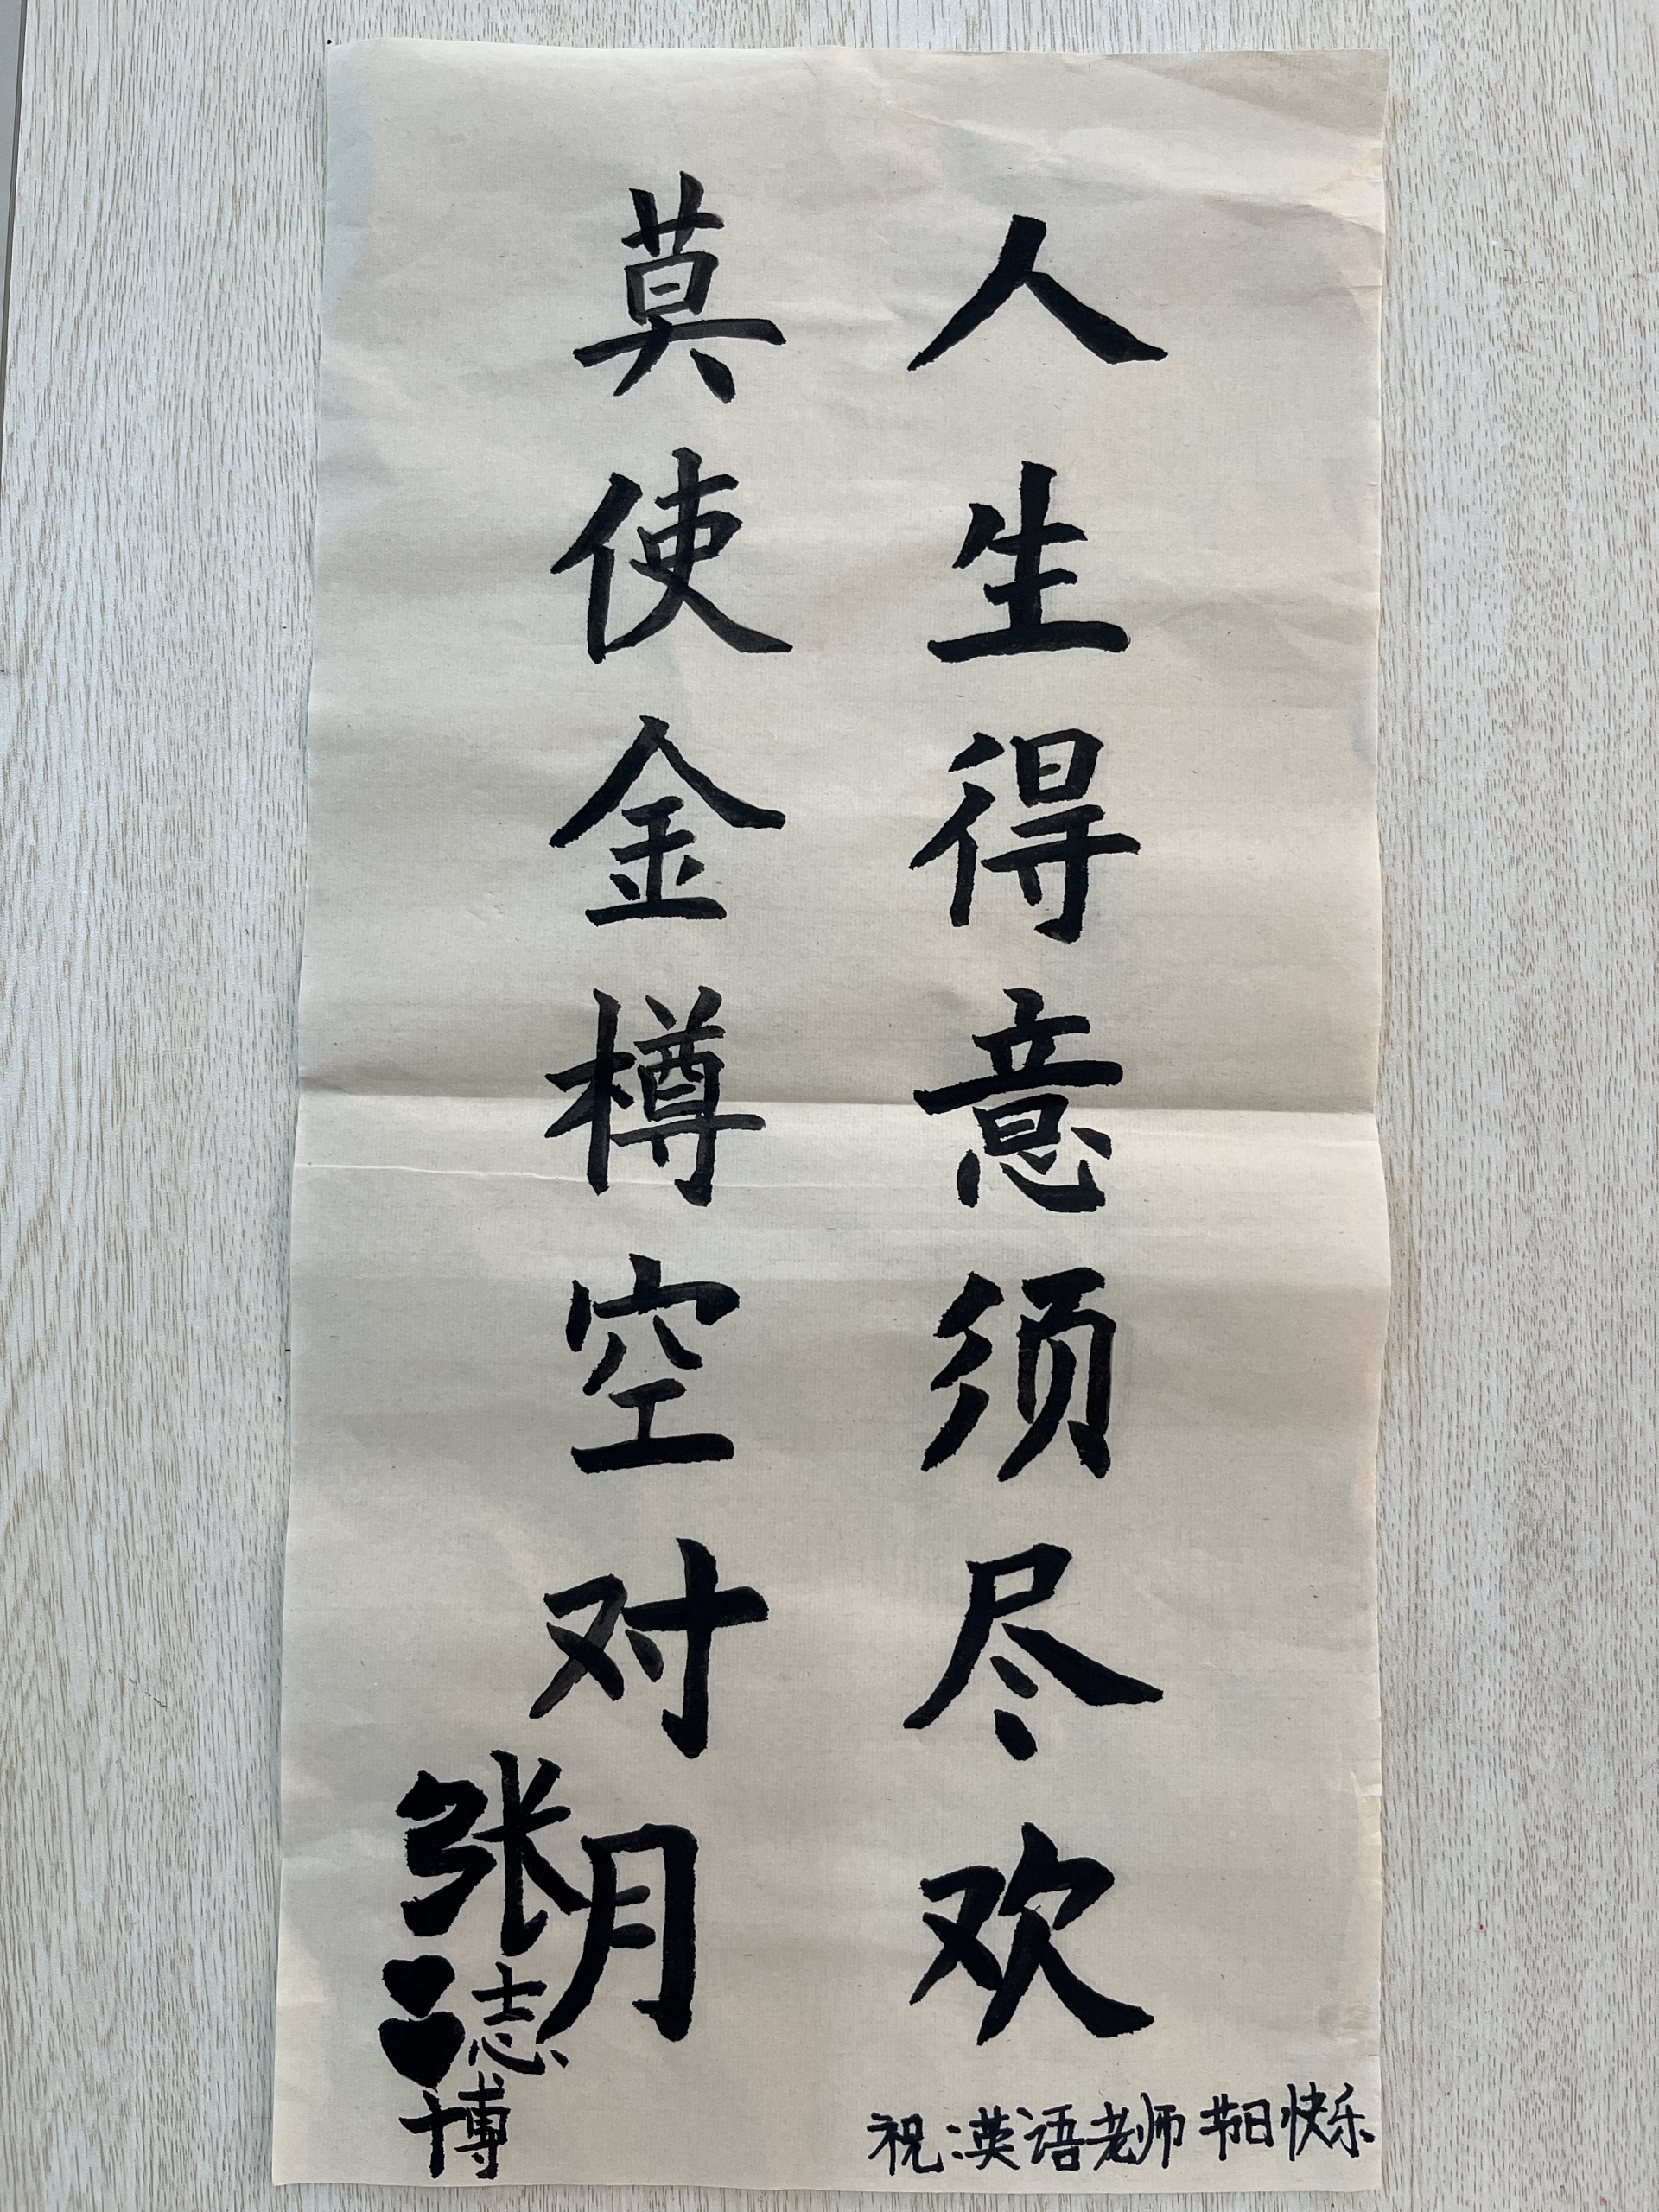 人生得意须尽欢
莫使金樽空对月
张志博
祝:英语老师节日快乐